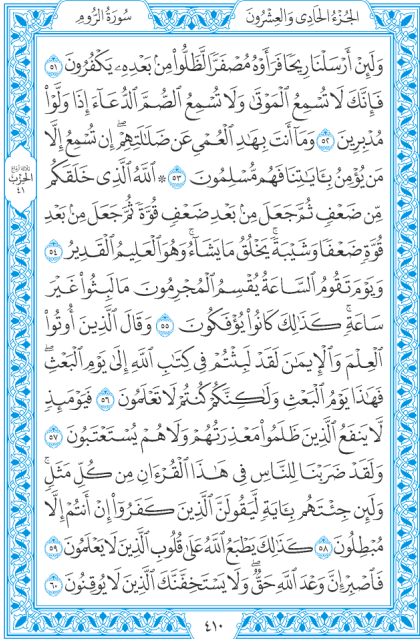 الجُزْءُ الحَادِى وَالعِشْرُونَ
سُورَةُ الرُّومِ
وَلَئِنْ أَرْسَلْنَا رِيحًا فَرَأَوْهُ مُصْفَرًّا لَّظَلُّوا۟ مِنۢ بَعْدِهِۦ يَكْفُرُونَ ٥١
فَإِنَّكَ لَا تُسْمِعُ ٱلْمَوْتَىٰ وَلَا تُسْمِعُ ٱلصُّمَّ ٱلدُّعَآءَ إِذَا وَلَّوْا۟
مُدْبِرِينَ ٥٢ وَمَآ أَنتَ بِهَٰدِ ٱلْعُمْىِ عَن ضَلَٰلَتِهِمْ ۖ إِن تُسْمِعُ إِلَّا
مَن يُؤْمِنُ بِـَٔايَٰتِنَا فَهُم مُّسْلِمُونَ ٥٣ ۞ ٱللَّهُ ٱلَّذِى خَلَقَكُم
ثلاثة أرباع
الحِزْب
٤١
مِّن ضَعْفٍ ثُمَّ جَعَلَ مِنۢ بَعْدِ ضَعْفٍ قُوَّةً ثُمَّ جَعَلَ مِنۢ بَعْدِ
قُوَّةٍ ضَعْفًا وَشَيْبَةً ۚ يَخْلُقُ مَا يَشَآءُ ۖ وَهُوَ ٱلْعَلِيمُ ٱلْقَدِيرُ ٥٤
وَيَوْمَ تَقُومُ ٱلسَّاعَةُ يُقْسِمُ ٱلْمُجْرِمُونَ مَا لَبِثُوا۟ غَيْرَ
سَاعَةٍ ۚ كَذَٰلِكَ كَانُوا۟ يُؤْفَكُونَ ٥٥ وَقَالَ ٱلَّذِينَ أُوتُوا۟
ٱلْعِلْمَ وَٱلْإِيمَٰنَ لَقَدْ لَبِثْتُمْ فِى كِتَٰبِ ٱللَّهِ إِلَىٰ يَوْمِ ٱلْبَعْثِ ۖ
فَهَٰذَا يَوْمُ ٱلْبَعْثِ وَلَٰكِنَّكُمْ كُنتُمْ لَا تَعْلَمُونَ ٥٦ فَيَوْمَئِذٍ
لَّا يَنفَعُ ٱلَّذِينَ ظَلَمُوا۟ مَعْذِرَتُهُمْ وَلَا هُمْ يُسْتَعْتَبُونَ ٥٧
وَلَقَدْ ضَرَبْنَا لِلنَّاسِ فِى هَٰذَا ٱلْقُرْءَانِ مِن كُلِّ مَثَلٍ ۚ
وَلَئِن جِئْتَهُم بِـَٔايَةٍ لَّيَقُولَنَّ ٱلَّذِينَ كَفَرُوٓا۟ إِنْ أَنتُمْ إِلَّا
مُبْطِلُونَ ٥٨ كَذَٰلِكَ يَطْبَعُ ٱللَّهُ عَلَىٰ قُلُوبِ ٱلَّذِينَ لَا يَعْلَمُونَ ٥٩
فَٱصْبِرْ إِنَّ وَعْدَ ٱللَّهِ حَقٌّ ۖ وَلَا يَسْتَخِفَّنَّكَ ٱلَّذِينَ لَا يُوقِنُونَ ٦٠
٤١٠